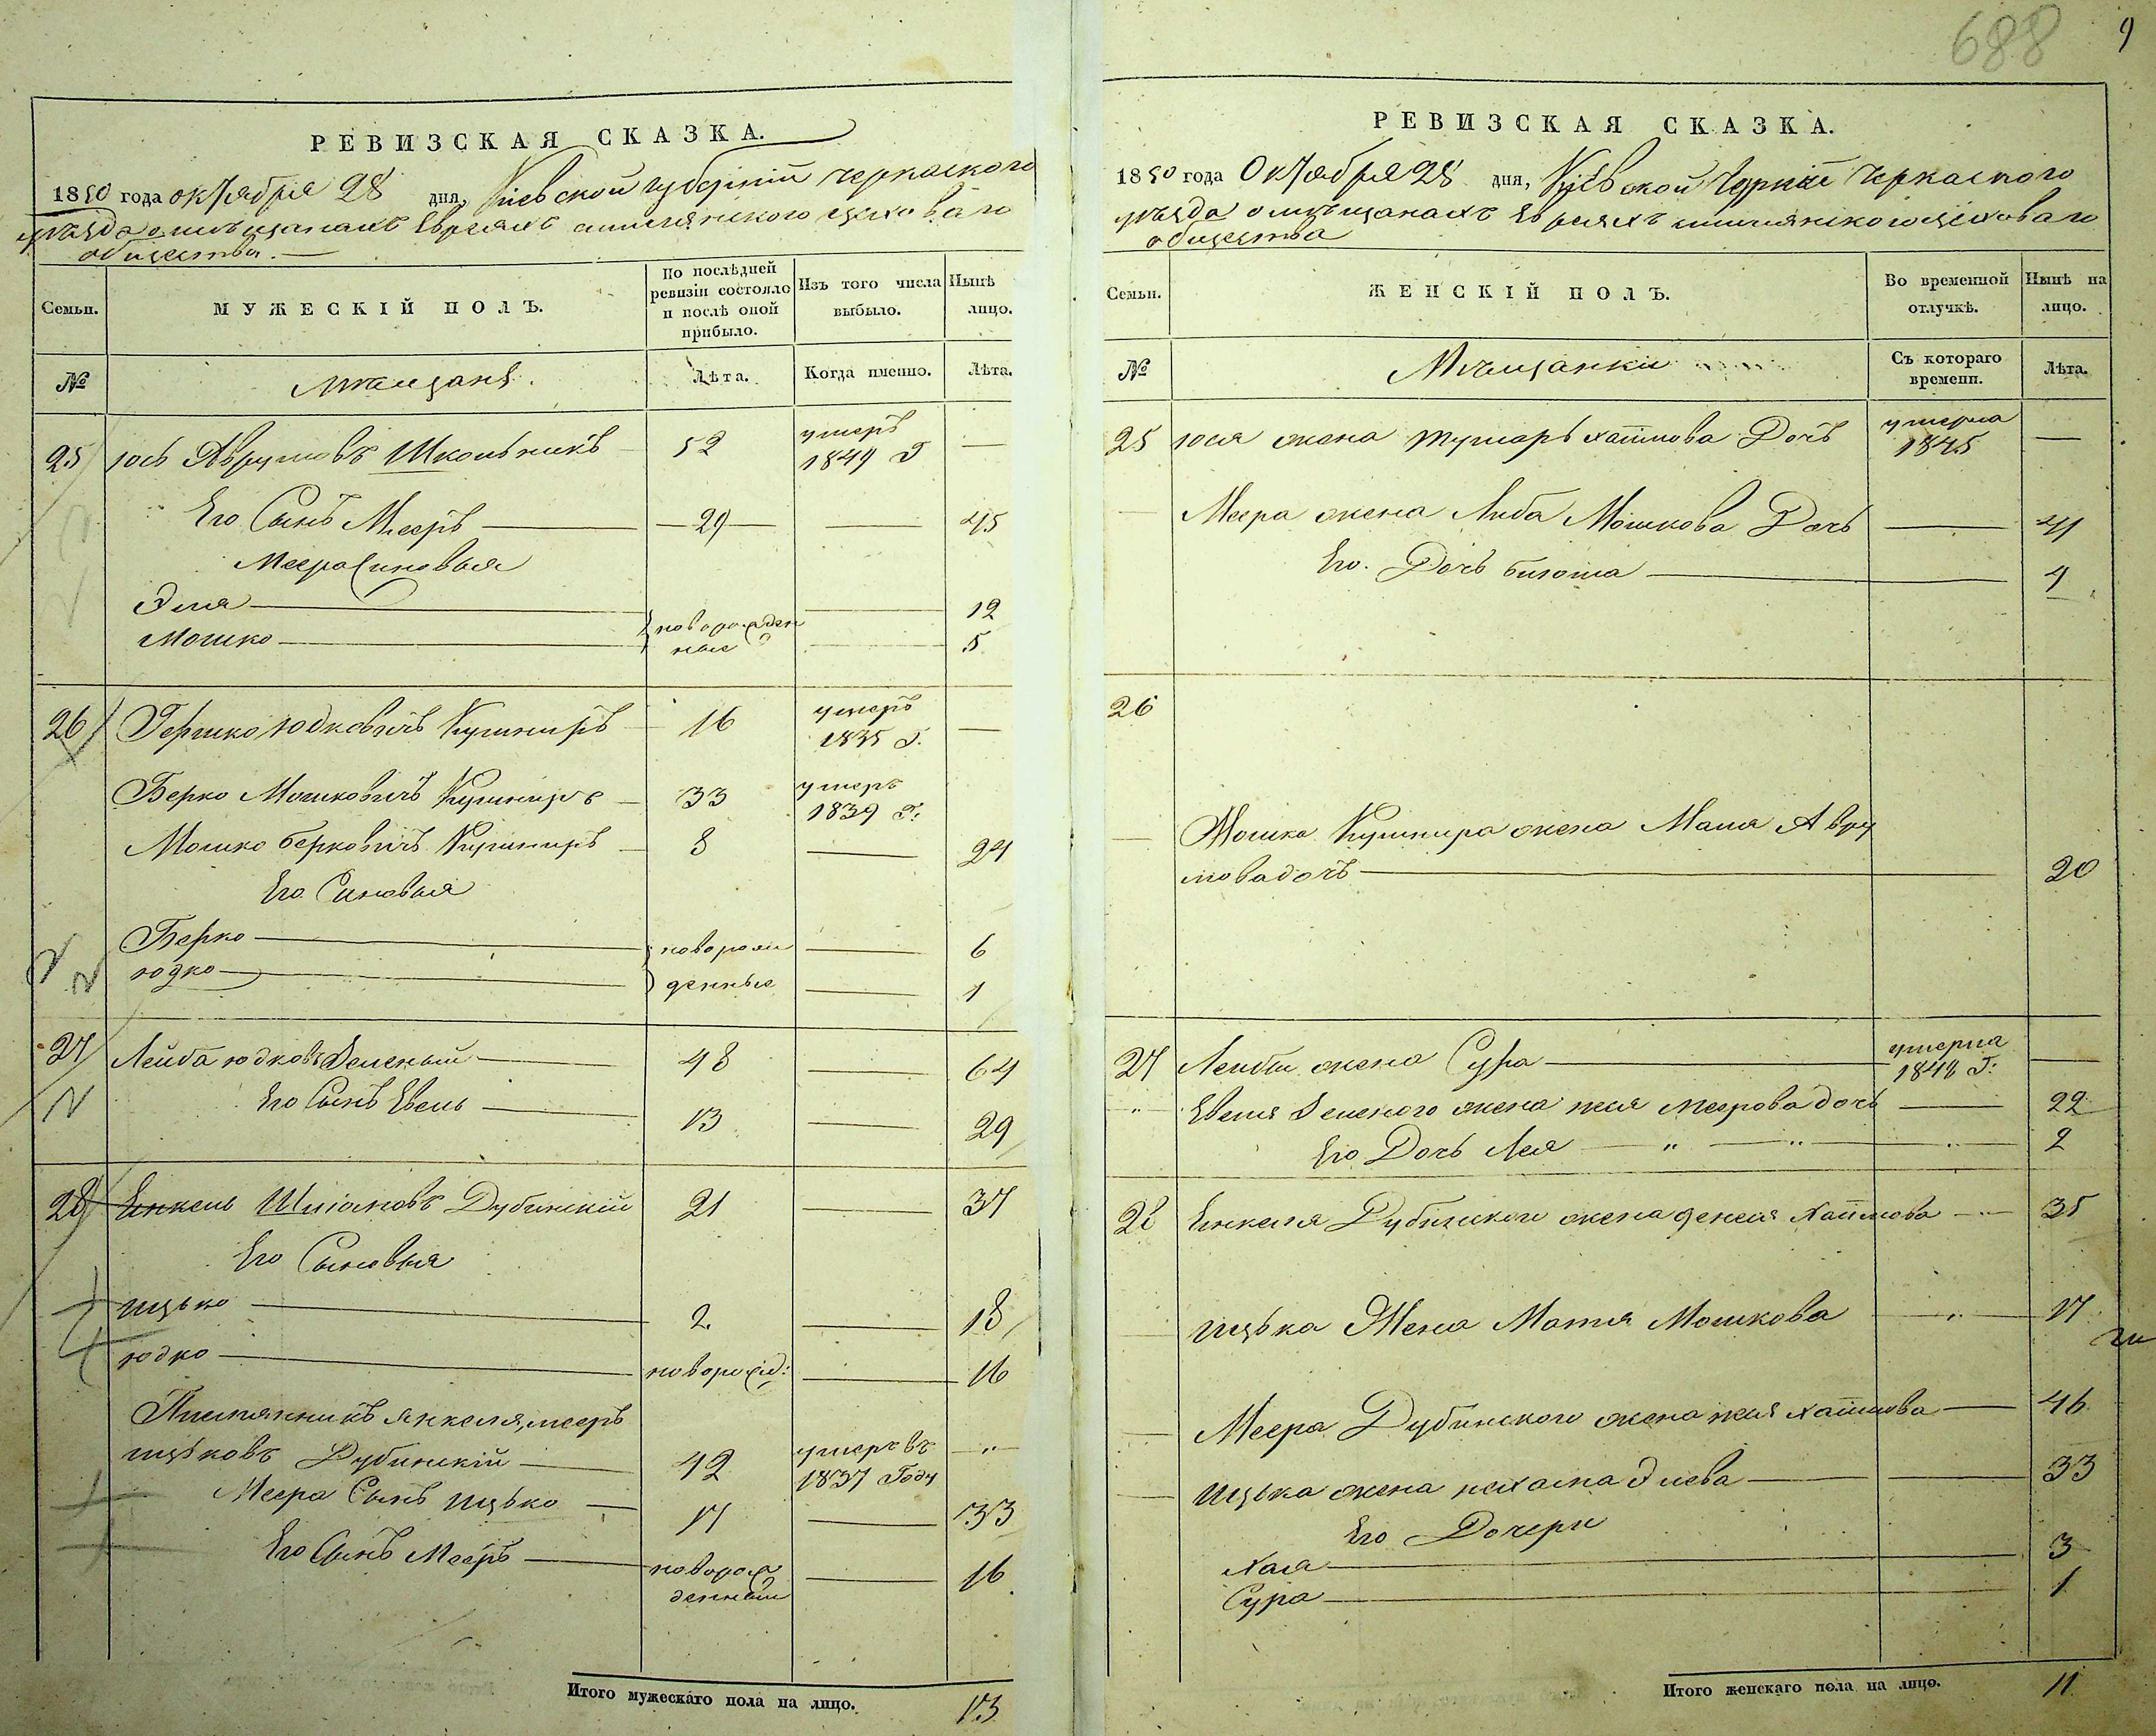 688
9
РЕВИЗСКАЯ СКАЗКА.
1850 года октября 28 дня, Кіевской губерніи черкаского
уѣзда о мѣщанахъ Евреяхъ цеховаго
общества.
Семьи.
МУЖЕСКІЙ ПОЛЪ.
По послѣдней ревизіи состояло и послѣ оной прибыло.
Изъ того числа выбыло.
Нынѣ лицо.
№
мѣщане.
Лѣта.
Когда именно.
Лѣта.
25 юсь Аврумовъ Школьникъ 52 умеръ 1849 г —
Его Сынъ Мееръ — 29 — — 45
Меера Синовья
Эля — новорожден — 12
Мошко — ные — 5
26 Гершко юдковичъ Кушниръ 16 умеръ 1835 г. —
Берко Мошковичъ Кушниръ 33 умеръ 1839 г:
Мошко берковичъ Кушниръ 8 — 24
Его Синовья
Берко — новорож — 6
юдко — денные — 1
27 Лейба юдковъ Зеленый — 48 — 64
Его Сынъ Евель — 13 — 29
28 Енкель Шліомовъ Дубинскій 21 — 37
Его Сыновья
ицько — 2. — 18
юдко — новорожд: — 16
Племянникъ янкеля, мееръ
ицьковъ Дубинскій — 42 умеръ въ 1837 Году — " —
Меера Сынъ ицько — 17 — 33
Его Сынъ Мееръ — новорож денный — 16
Итого мужескаго пола на лицо. 13
РЕВИЗСКАЯ СКАЗКА.
1850 года Октября 28 дня, Кіевской Черкаского
уѣзда о мѣщанахъ Евреяхъ цеховаго
общества
Семьи.
ЖЕНСКІЙ ПОЛЪ.
Во временной отлучкѣ.
Нынѣ на лицо.
№
Мѣщанки
Съ котораго времени.
Лѣта.
25 юся жена хаимова Дочь умерла 1845 —
Меера жена Либа Мошкова Дочь — 41
Его Дочь —
26
Мошка Кушнира жена Маля Авру
мова дочь — 20
27 Лейбы жена Сура — умерла 1848 г: —
Евеля Зеленого жена меерова дочь — 22
Его Дочь Лея — " — " — 2
28 Енкеля Дубинского жена хаимова — " — 35
ицька Жена Мошкова — " — 17
Меера Дубинского жена хаимова — 46
ицька жена нехама Элева — 33
Его Дочери
Хая — 3
Сура — 1
Итого женскаго пола на лицо. 11